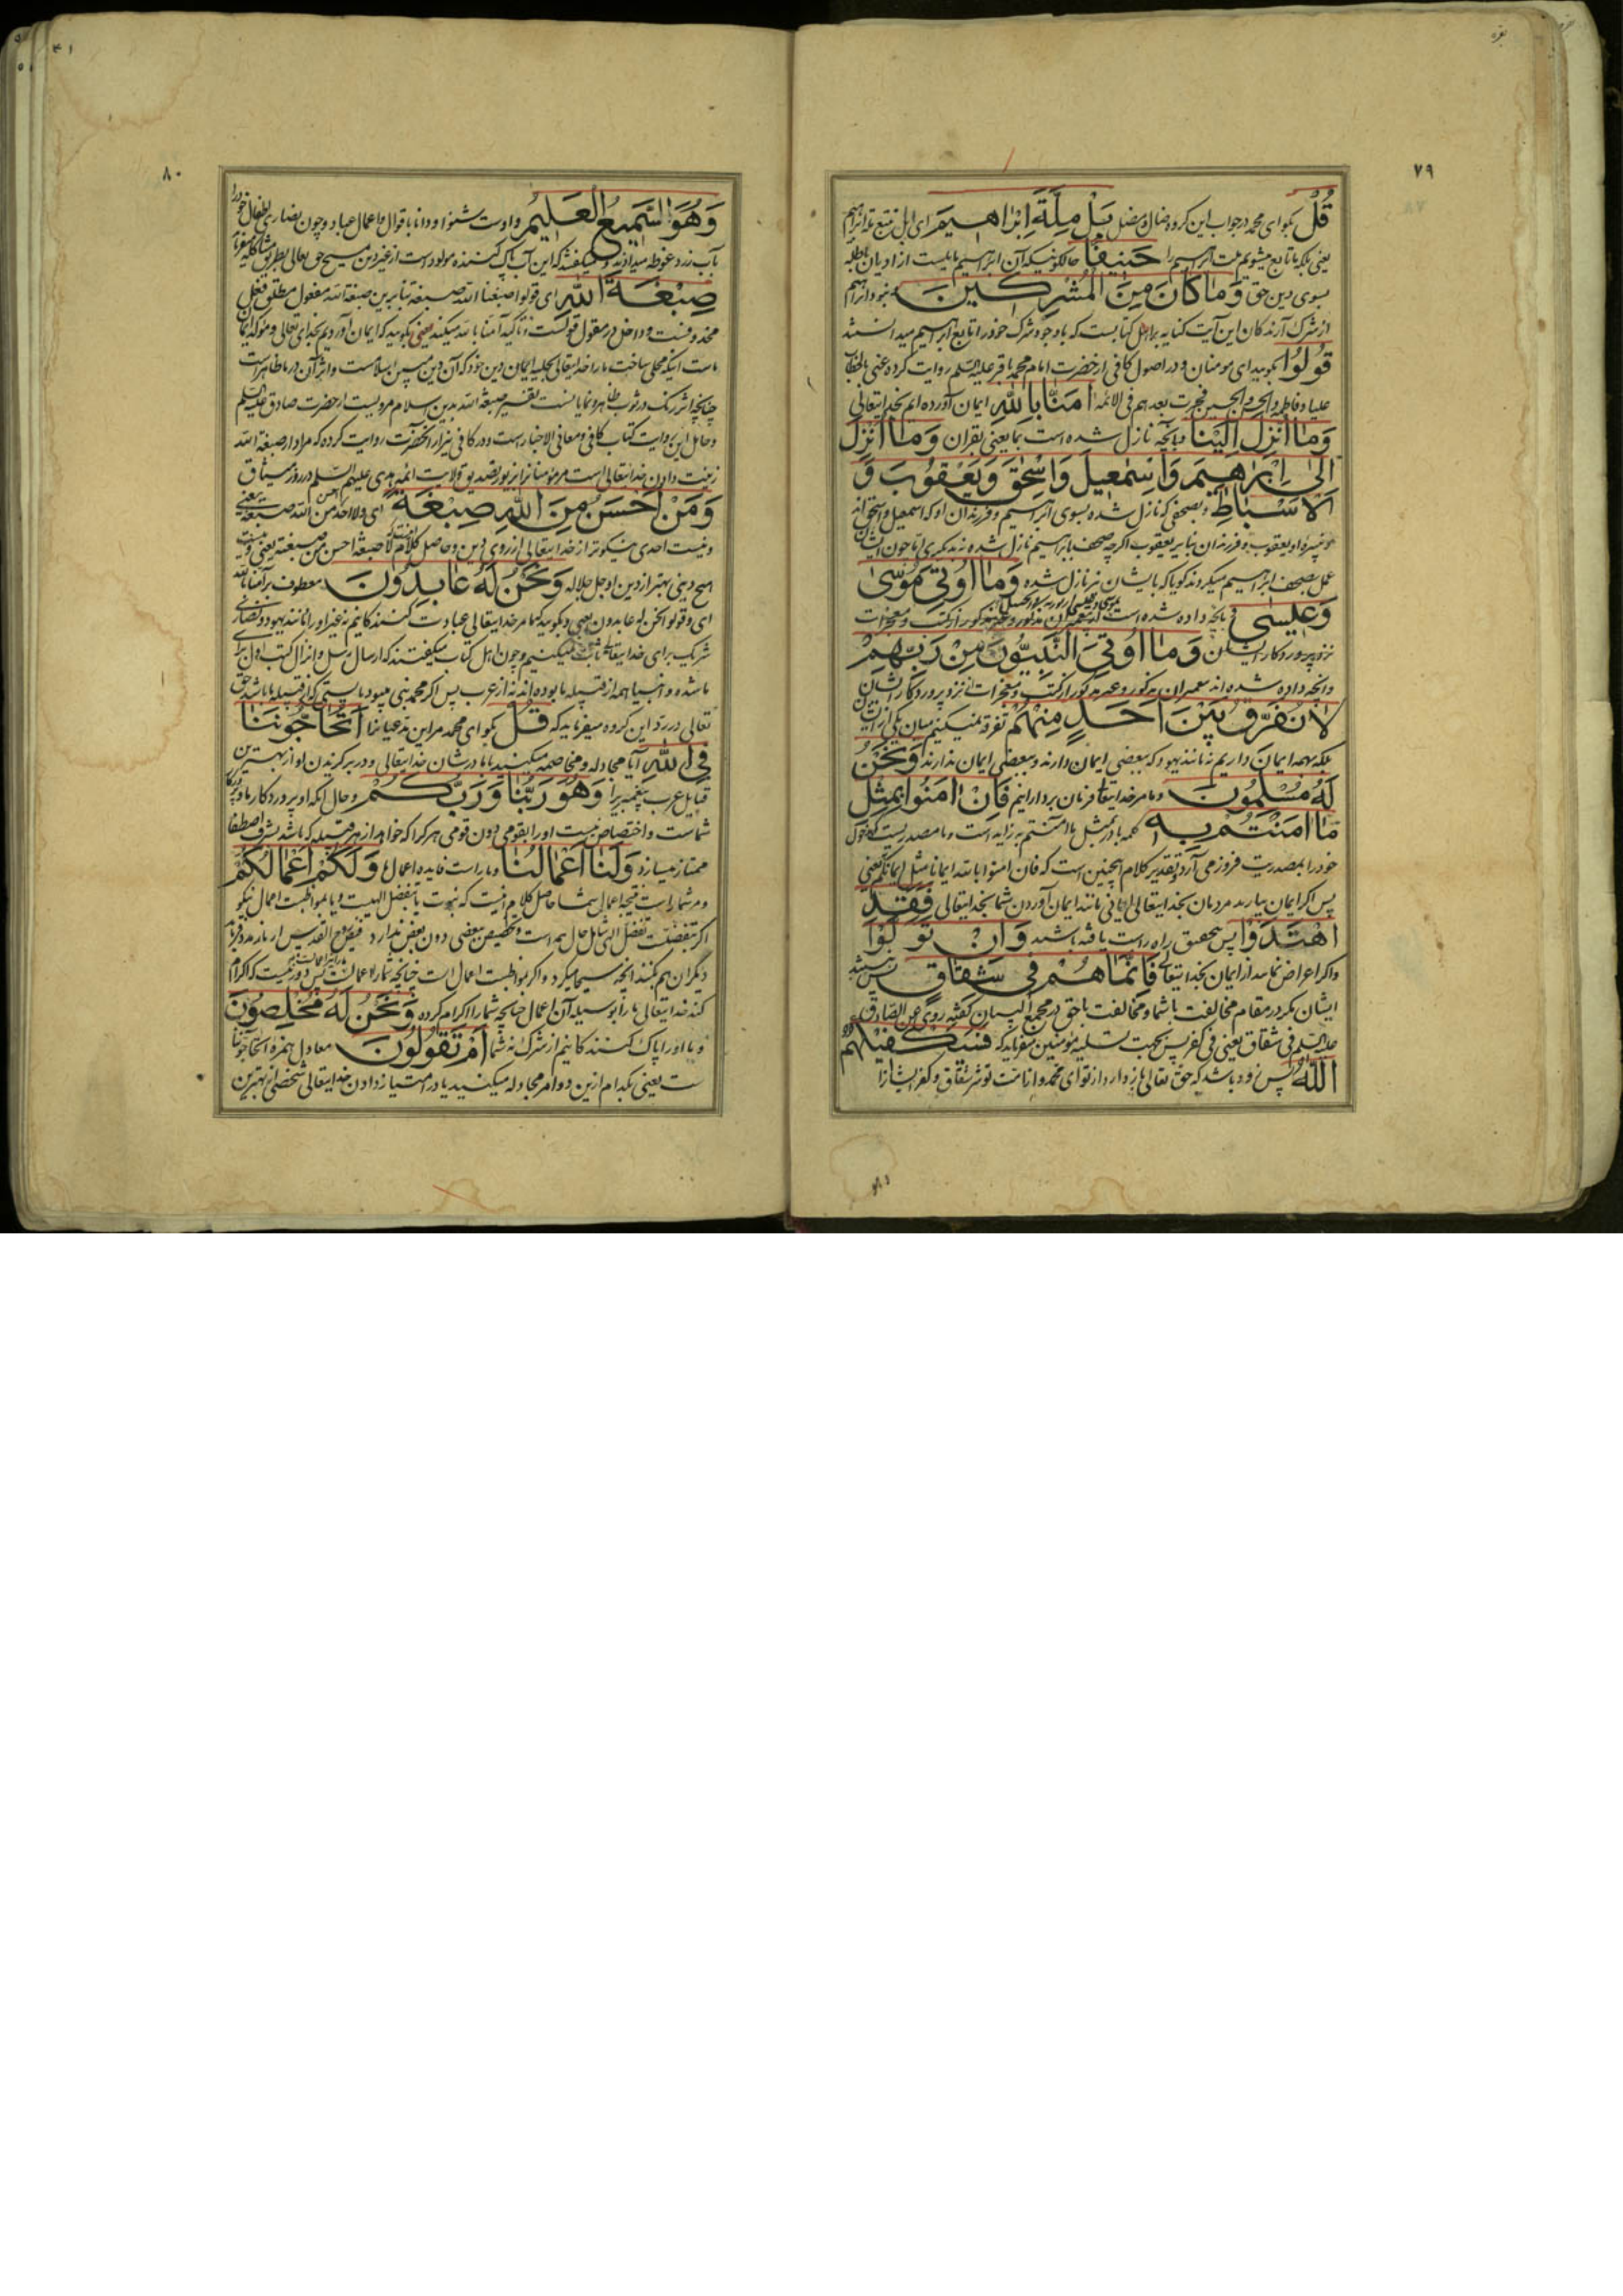 ٧٩
قُلْ بگو ای محمد در جواب این گروه ضال و مضل بَلْ مِلَّةَ اِبْرٰاهِیمَ ای بل نتبع ملة ابراهیم
یعنی بلکه ما تابع میشویم ملت ابراهیم را حَنِیفًا حالکونیکه آن ابراهیم مایلست از ادیان باطله
بسوی دین حق وَمٰا کٰانَ مِنَ الْمُشْرِکِینَ و نبود ابراهیم
از شرک آرندکان این آیت کنایه بر اهل کتابست که با وجود شرک خود را تابع ابراهیم میدانستند
قُولُوا بگویید ای مومنان و در اصول کافی از حضرت امام محمد باقر علیه السلم روایت کرده عنی بالخطاب
علیا و فاطمه والحسن والحسین و جرت بعدهم فی الائمه اٰمَنّٰا بِاللّٰهِ ایمان آورده ایم بخدایتعالی
وَمٰا اُنْزِلَ اِلَیْنٰا و بآنچه نازل شده است بما یعنی بقران وَمٰا اُنْزِلَ
اِلیٰ اِبْرٰهِیمَ وَاِسْمٰعِیلَ وَاِسْحٰقَ وَیَعْقُوبَ وَ
الْاَسْبٰاطِ و بصحفی که نازل شده بسوی ابراهیم و فرزندان او که اسمعیل و اسحق اند
و نبیره او یعقوب و فرزندان بنابر یعقوب اگرچه صحف بابراهیم نازل شده نه بدیگری اما چون ایشان
عمل بصحف ابراهیم میکردند گویا که بایشان نیز نازل شده وَمٰا اُوتِیَ مُوسیٰ
وَعِیسیٰ و بآنچه داده شده است
نزد پروردکار ایشان وَمٰا اُوتِیَ النَّبِیُّونَ مِنْ رَبِّهِمْ
و آنچه داده شده اند پیغمبران مذکور و غیر مذکور از کتب و معجزات از نزد پروردکار ایشان
لٰا نُفَرِّقُ بَیْنَ اَحَدٍ مِنْهُمْ تفرقه نمیکنیم میان یکی از ایشان
بلکه بهمه ایمان داریم نه مانند یهود که ببعضی ایمان دارند و ببعضی ایمان ندارند وَنَحْنُ
لَهُ مُسْلِمُونَ و ما مر خدایتعالی فرمان بردارانیم فَاِنْ اٰمَنُوا بِمِثْلِ
مٰا اٰمَنْتُمْ بِهِ کلمه با در بمثل ما امنتم به زایده است و ما مصدریست که دخول
خود را بمصدریت فرو می آرد و تقدیر کلام اینچنین است که فان امنوا بالله ایمانا مثل ایمانکم یعنی
پس اگر ایمان بیارند مردمان بخدایتعالی ایمانی مانند ایمان آوردن شما بخدایتعالی فَقَدِ
اهْتَدَوْا پس بتحقیق راه راست یافته باشند وَاِنْ تَوَلَّوْا
و اگر اعراض نمایند از ایمان بخدایتعالی فَاِنَّمٰا هُمْ فِی شِقٰاقٍ پس نیستند
ایشان مگر در مقام مخالفت با شما و مخالفت با حق در مجمع البیان گفته روی عن الصادق
علیه السلم فی شقاق یعنی فی کفر پس بجهت تسلیه مؤمنین میفرماید که فَسَیَکْفِیکَهُمُ
اللّٰهُ پس زود باشد که حق تعالی باز دارد از تو ای محمد و از امت تو شر شقاق و کفر ایشانرا
٨٠
وَهُوَ السَّمِیعُ الْعَلِیمُ و اوست شنوا و دانا باقوال و اعمال عباد و چون نصاری اطفال خود را
بآب زرد غوطه میدادند و میگفتند که این آب پاک کننده مولود است از غیر دین مسیح حق تعالی بطریق مشاکله میفرماید
صِبْغَةَ اللّٰهِ ای قولوا صبغنا الله صبغة بنابرین صبغة الله مفعول مطلق فعل
محذوفست و داخل در مقول قولست و تاکید آمنا بالله میکند یعنی بگویید که ایمان آوردیم بخدای تعالی و موکد ایمان
ماست اینکه محلی ساخت ما را خدایتعالی بحلیه ایمان دین خود که آن دین مبین اسلامست و اثر آن در ما ظاهر است
چنانچه اثر رنگ در ثوب ظاهر و نمایانست تفسیر صبغة الله بدین اسلام مرویست از حضرت صادق علیه السلم
و حامل این روایت کتاب کافی و معانی الاخبار است و در کافی نیز از آنحضرت روایت کرده که مراد از صبغة الله
زینت دادن خدایتعالی است مر مؤمنانرا بنور تصدیق ولایت ائمه هدی علیهم السلم در روز میثاق
وَمَنْ اَحْسَنُ مِنَ اللّٰهِ صِبْغَةً ای و لا احد احسن من الله صبغة یعنی
و نیست احدی نیکوتر از خدایتعالی از روی دین و حاصل کلام آنکه لا صبغة احسن من صبغته یعنی و نیست
هیچ دینی بهتر از دین او جل جلاله وَنَحْنُ لَهُ عٰابِدُونَ معطوف بر آمنا بالله
ای و قولوا نحن له عابدون یعنی و بگویید که ما مر خدایتعالی عبادت کنندکانیم نه غیر او را مانند یهود و نصاری
شریک برای خدایتعالی ثابت نمیکنیم و چون اهل کتاب میگفتند که ارسال رسل و انزال کتب اول برای
ما شده و انبیا همه از قبیله ما بوده اند نه از عرب پس اگر محمد نبی میبود بایستی که از قبیله ما باشد حق
تعالی در رد این گروه میفرماید که قُلْ بگو ای محمد مر این مدعیانرا اَتُحٰاجُّونَنٰا
فِی اللّٰهِ آیا مجادله و مخاصمه میکنید با ما در شان خدایتعالی و در برگزیدن او از بهترین
قبایل عرب پیغمبریرا وَهُوَ رَبُّنٰا وَرَبُّکُمْ و حال آنکه او پروردکار ما و پروردکار
شماست و اختصاص نیست او را بقومی دون قومی هر کرا که خواهد از هر قبیله که باشد بشرف اصطفا
ممتاز میسازد وَلَنٰا اَعْمٰالُنٰا و ما راست فایده اعمال ما وَلَکُمْ اَعْمٰالُکُمْ
و مر شما راست نتیجه اعمال شما حاصل کلام اینست که نبوت یا بتفضل الهیست و یا بمواظبت اعمال نیکو
اگر بتفضلست تفضل الهی شامل حال همه است و تخصیص ببعضی دون بعض ندارد فیض روح القدس ار باز مدد فرماید
دیگران هم بکنند آنچه مسیحا میکرد و اگر بمواظبت اعمال است چنانچه شما را اعمالست ما را نیز اعمالست پس دور نیست که اکرام
کند خدایتعالی ما را بوسیله آن اعمال چنانچه شما را اکرام کرده وَنَحْنُ لَهُ مُخْلِصُونَ
و ما او را پاک کنندکانیم از شرک نه شما اَمْ تَقُولُونَ معادل همزه اتحاجوننا
ست یعنی بکدام ازین دو امر مجادله میکنید یا در امتیاز دادن خدایتعالی شخصی از بهترین